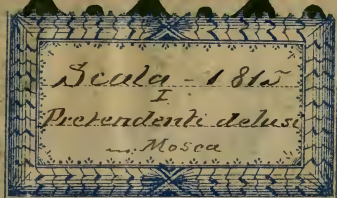 Scala - 1815
I
Pretendenti delusi
m. Mosca